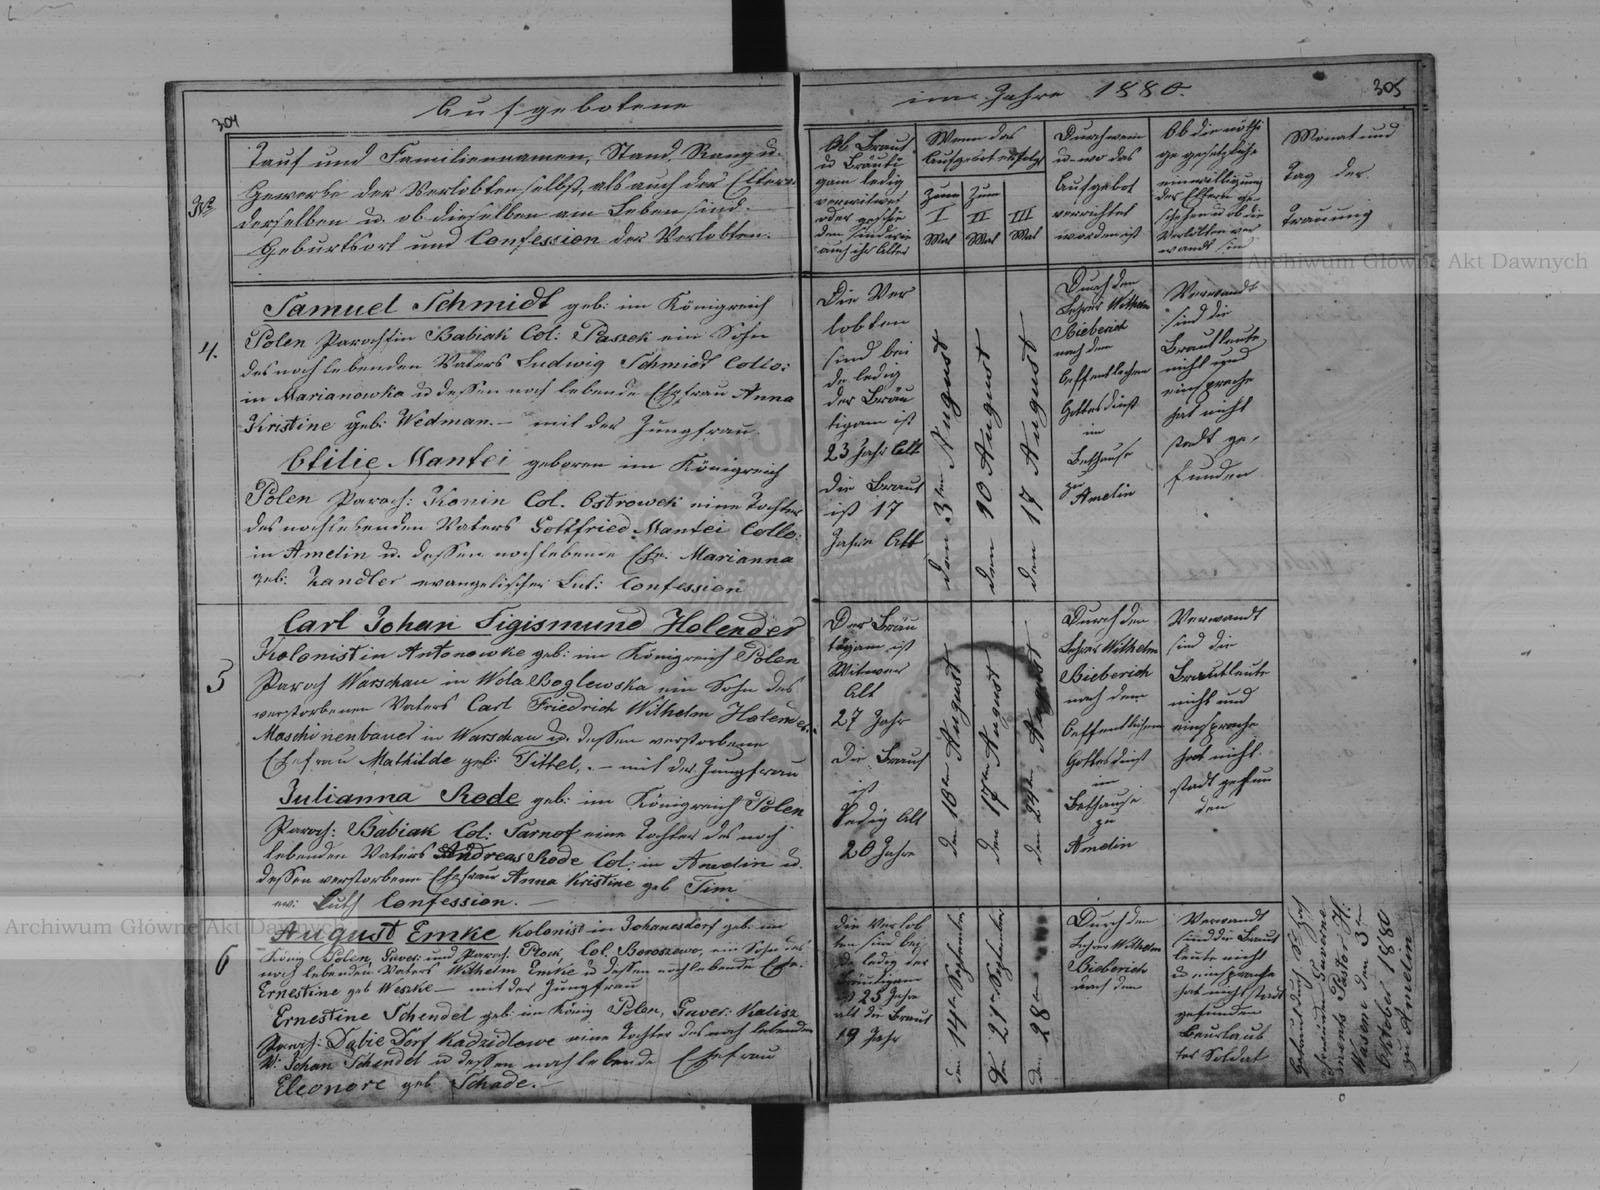 304
Aufgebotene
No
Tauf und Familiennamen, Stand, Rang u.
Gewerbe der Verlobten selbst, als auch der Eltern
derselben u. ob dieselben am Leben sind.
Geburtsort und Confession der Verlobten.
4.
Samuel Schmidt geb: im Königreich
Polen Parochfin Babiak Col: Paszek ein Sohn
des noch lebenden Vaters Ludwig Schmidt Collo:
in Marianowka u dessen noch lebende Ehefrau Anna
Kristine geb: Wedman.— mit der Jungfrau
Otilie Mantei geboren im Königreich
Polen Paroch: Konin Col. Ostrowek eine Tochter
des noch lebenden Vaters Gottfried Mantei Collo:
in Amelin u. dessen noch lebende Ehe: Marianna
geb: Zandler evangelischer Lut: Confession
5
Carl Johan Sigismund Holender
Kolonist in Antonowke geb: im Königreich Polen
Paroch Warschau in Wola Boglewska ein Sohn des
verstorbenen Vaters Carl Friedrich Wilhelm Holender
Maschinenbauer in Warschau u. dessen verstorbene
Ehefrau Mathilde geb: Tittel,.— mit der Jungfrau
Julianna Rode geb: im Königreich Polen
Paroch: Babiak Col: Tarnof eine Tochter des noch
lebenden Vaters Andreas Rode Col: in Amelin u.
dessen verstorbene Ehefrau Anna Kristine geb Tim
ev: Luth Confession.—
6
August Emke Kolonist in Johanesdorf geb: im
König Polen, Guver: und Paroch: Plock, Col. Boroszewo, ein Sohn des
noch lebenden Vaters Wilhelm Emke u dessen noch lebende Ehe:
Ernestine geb Weske— mit der Jungfrau
Ernestine Schendel geb: im König Polen, Guver: Kalisz
Paroch: Dąbie Dorf Kadzidlowe eine Tochter des noch lebenden
V: Johan Schendel u dessen noch lebende Ehefrau
Eleonore geb Schade.—
im Jahre 1880.
305
Ob Braut
u Bräuti
gam ledig
verwitwet
oder geschie
den sind wie
auch ihr Alter
Wenn das
Aufgebot erfolgt
Zum
I
Mal
Zum
II
Mal
III
Mal
Durch wem
u. wo das
Aufgebot
verrichtet
worden ist
Ob die nöthi
ge gesetzliche
einwilligung
der Eltern ge-
schehen u ob die
Verlobten ver
wandt sind
Monat und
Tag der
Trauung
Die Ver
lobten
sind bei
de ledig
der Bräu
tigam ist
23 Jahr Alt
die Braut
ist 17
Jahre Alt
den 3ten August
den 10 August
den 17 August
Durch den
Lehrer Wilhelm
Bieberich
nach dem
Oeffentlichen
Gottesdinst
im
Bethause
zu
Amelin
Verwandt
sind die
Brautleute
nicht und
einsprache
hat nicht
stadt ge,
funden
Der Bräu
tigam ist
Witwer
Alt
27 Jahr
Die Braut
ist
Ledig Alt
20 Jahre
den 10ten August
den 17ten August
den 24ten August
Durch den
Lehrer Wilhelm
Bieberich
nach dem
Oeffentlichen
Gottesdinst
im
Bethause
zu
Amelin
Verwandt
sind die
Brautleute
nicht und
einsprache
hat nicht
stadt gefun
den
die Verlob
ten sind bei
de ledig der
Bräutigam
ist 25 Jahr
alt die Braut
19 Jahr
den 14ten September
den 21ten September
den 28ten
Durch den
Lehrer Wilhelm
Bieberich
nach dem
Verwandt
sind die Braut
leute nicht
u einsprache
hat nicht stadt
gefunden
Beurlaub
ter Soldat
Getraut durch
Pastor H:
Wasem den 3ten
Oktober 1880
zu Amelin
Archiwum Główne Akt Dawnych
Archiwum Główne Akt Dawnych